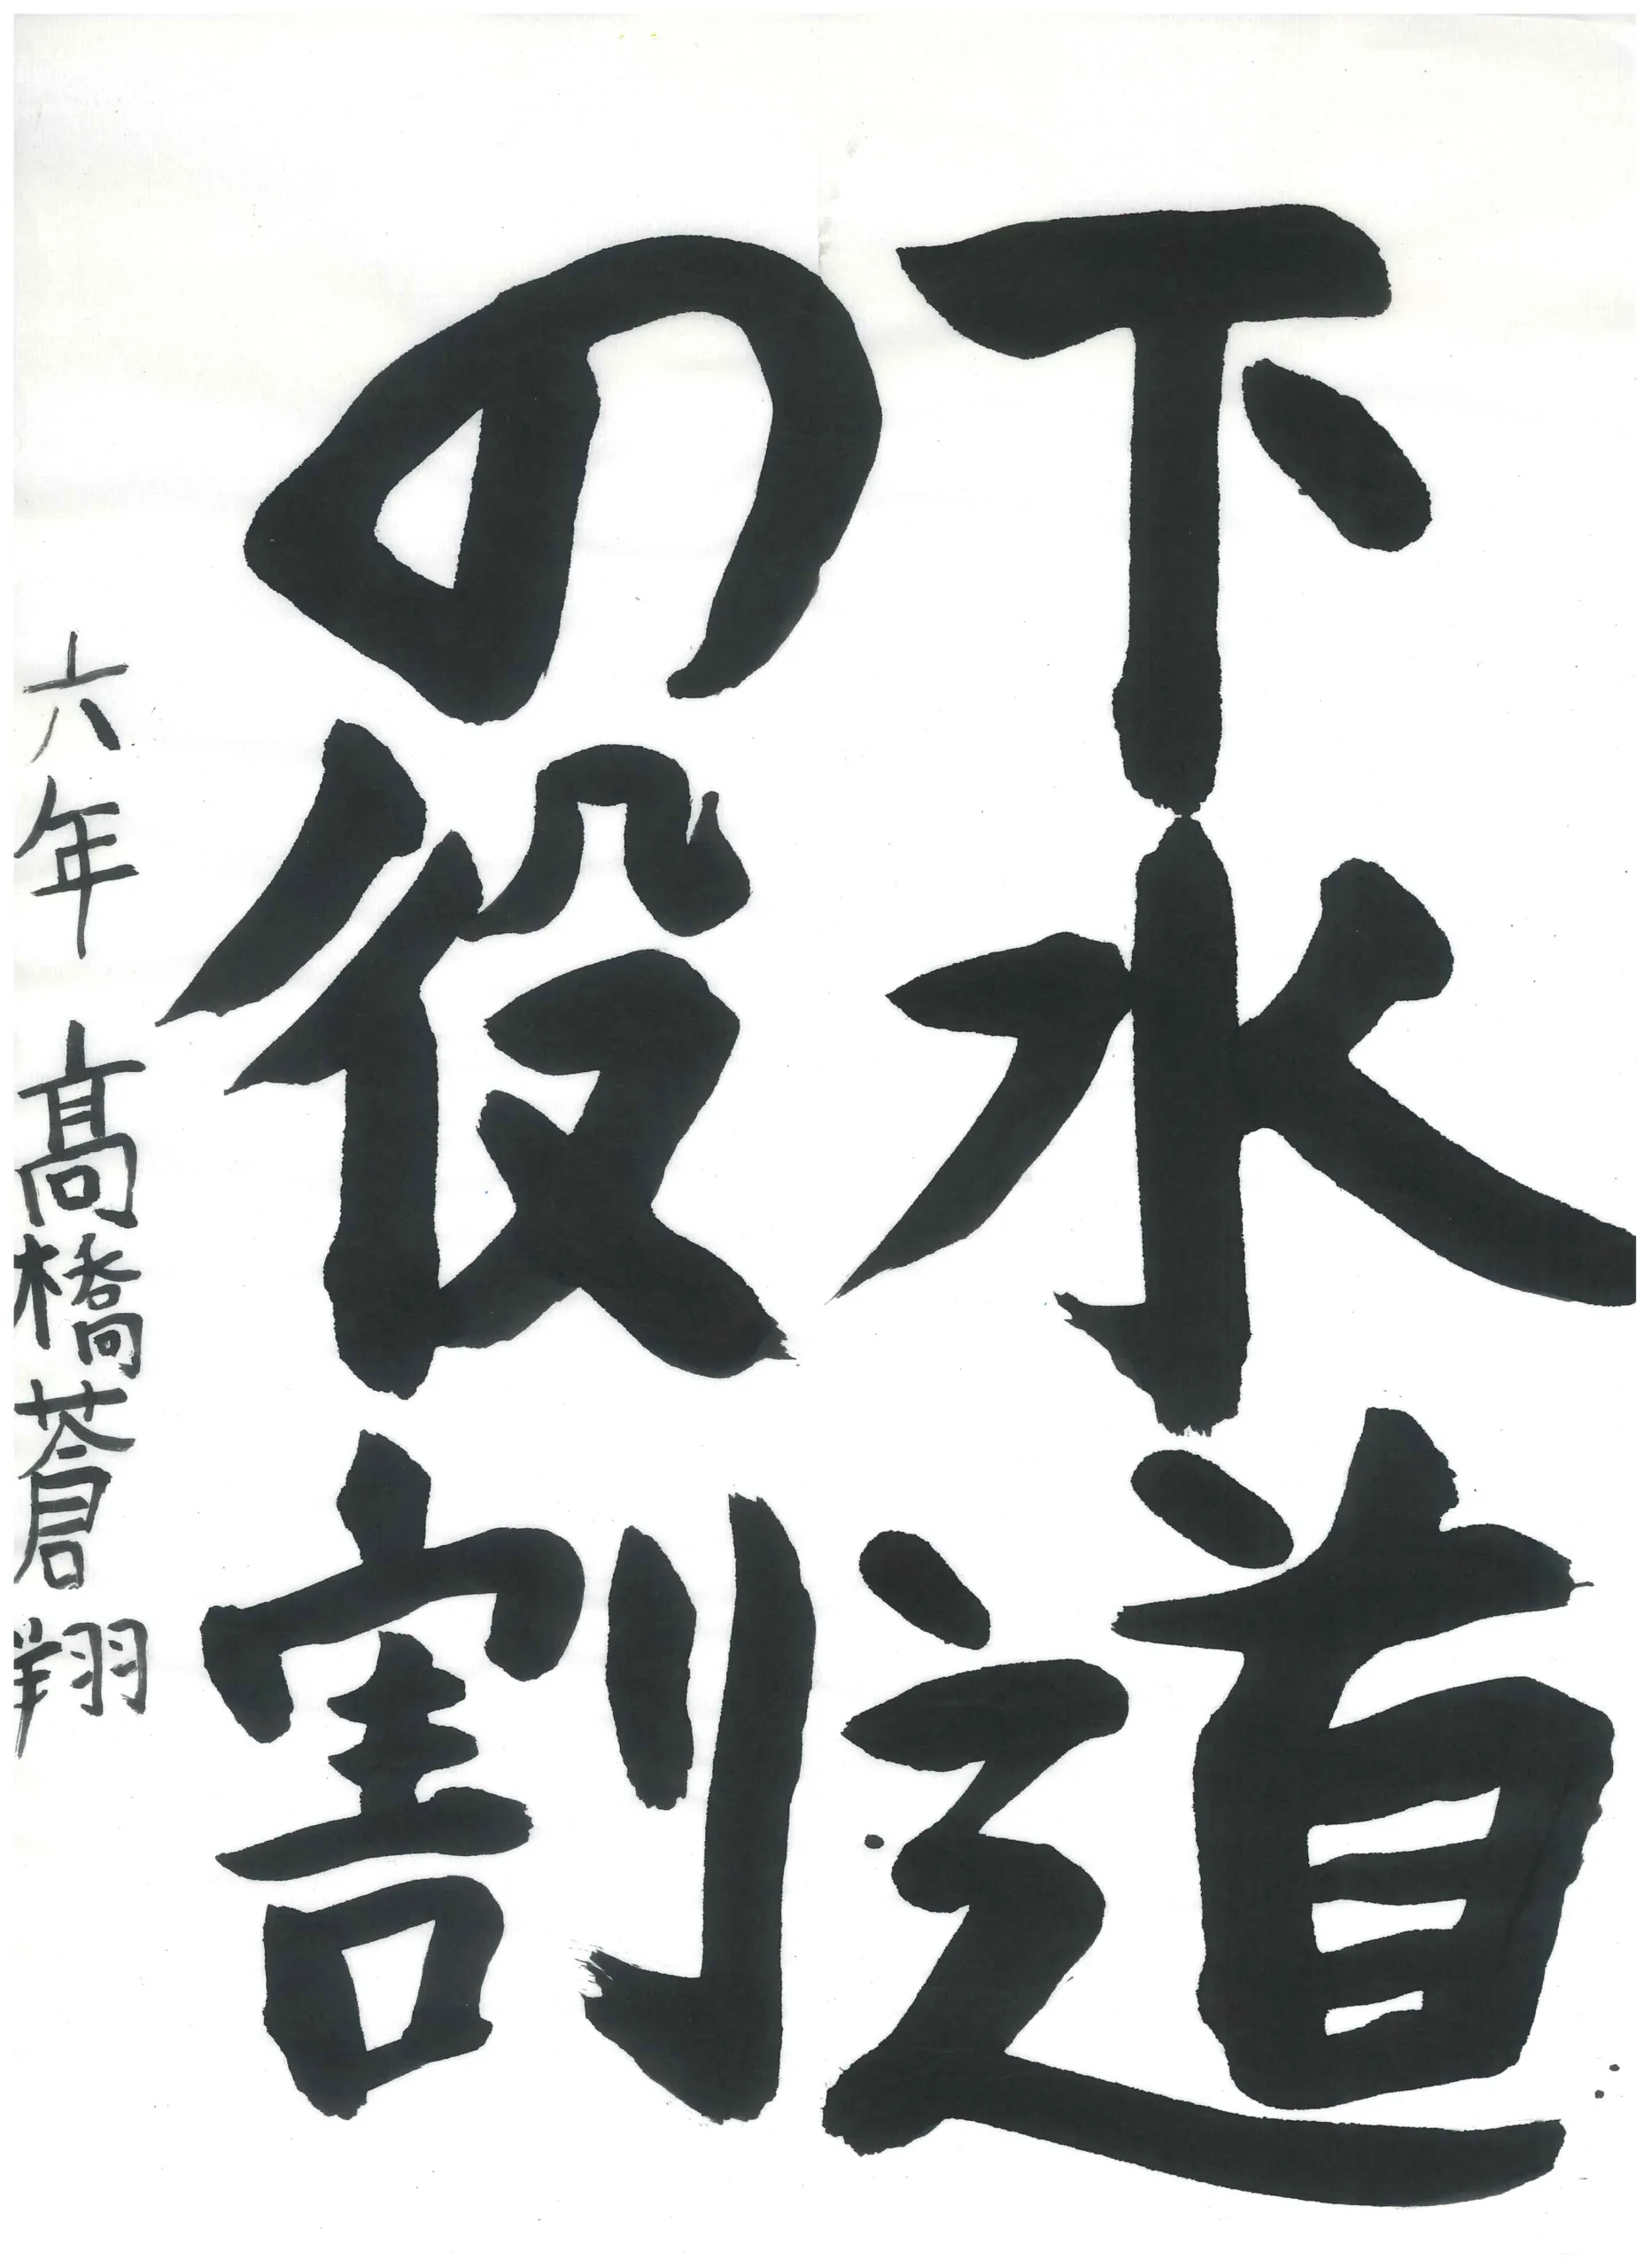 下水道
の役割
六年 髙橋蒼翔